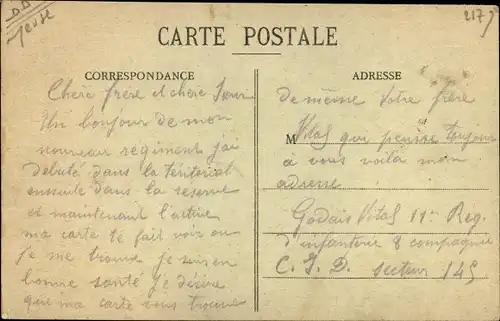 Meuse
2177
CARTE POSTALE
CORRESPONDANCE
Chere frère et chere Sœur
Un bonjour de mon
nouveau regiment j'ai
debuté dans la téritorial
ensuite dans la reserve
et maintenant l'active
ma carte te fait voir ou
je me trouve je suis en
bonne santé je désire
que ma carte vous trouve
ADRESSE
de même Votre frère
M Vital qui pense toujours
a vous voila mon
adresse
Godais Vital 11me Reg.
d'infanterie 8 compagnie
C. I. D. secteur 145